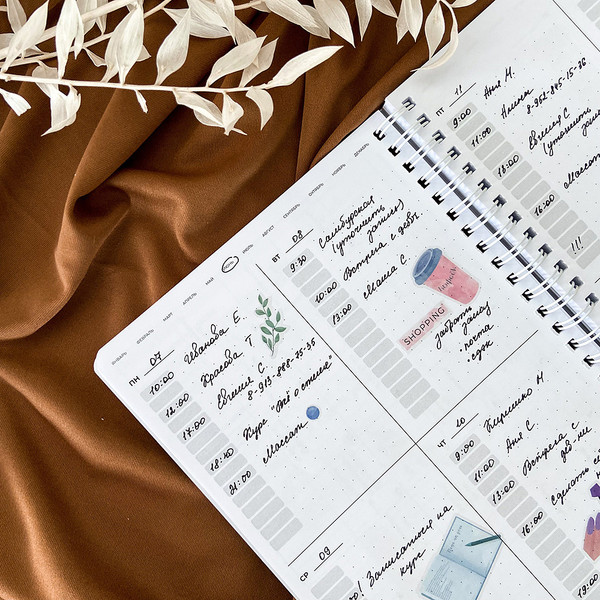 ЯНВАРЬ ФЕВРАЛЬ МАРТ АПРЕЛЬ МАЙ ИЮНЬ ИЮЛЬ АВГУСТ СЕНТЯБРЬ ОКТЯБРЬ НОЯБРЬ ДЕКАБРЬ
ПН 07
10:00 Иванова Е.
12:00 Красова Т
17:00 Евгения С
8-913-888-35-35
18:40 Курс "Всё о спине"
21:00 Массаж
ВТ 08
9:30 Самбурская
(уточнить
запись)
10:00 Встреча с деб.
13:00 Маша С.
SHOPPING
забрать
заказ
• почта
• сдэк
СР 09
! Записаться на
курс
ЧТ 10
9:00 Кириенко М
11:00 Аня С.
13:00 Встреча с
16:00 сделать
19:00
ПТ 11
9:00 Аня М.
11:00 Алина
8-962-885-15-36
13:00 Евгения С
(уточнить
16:00 Массаж
!!!